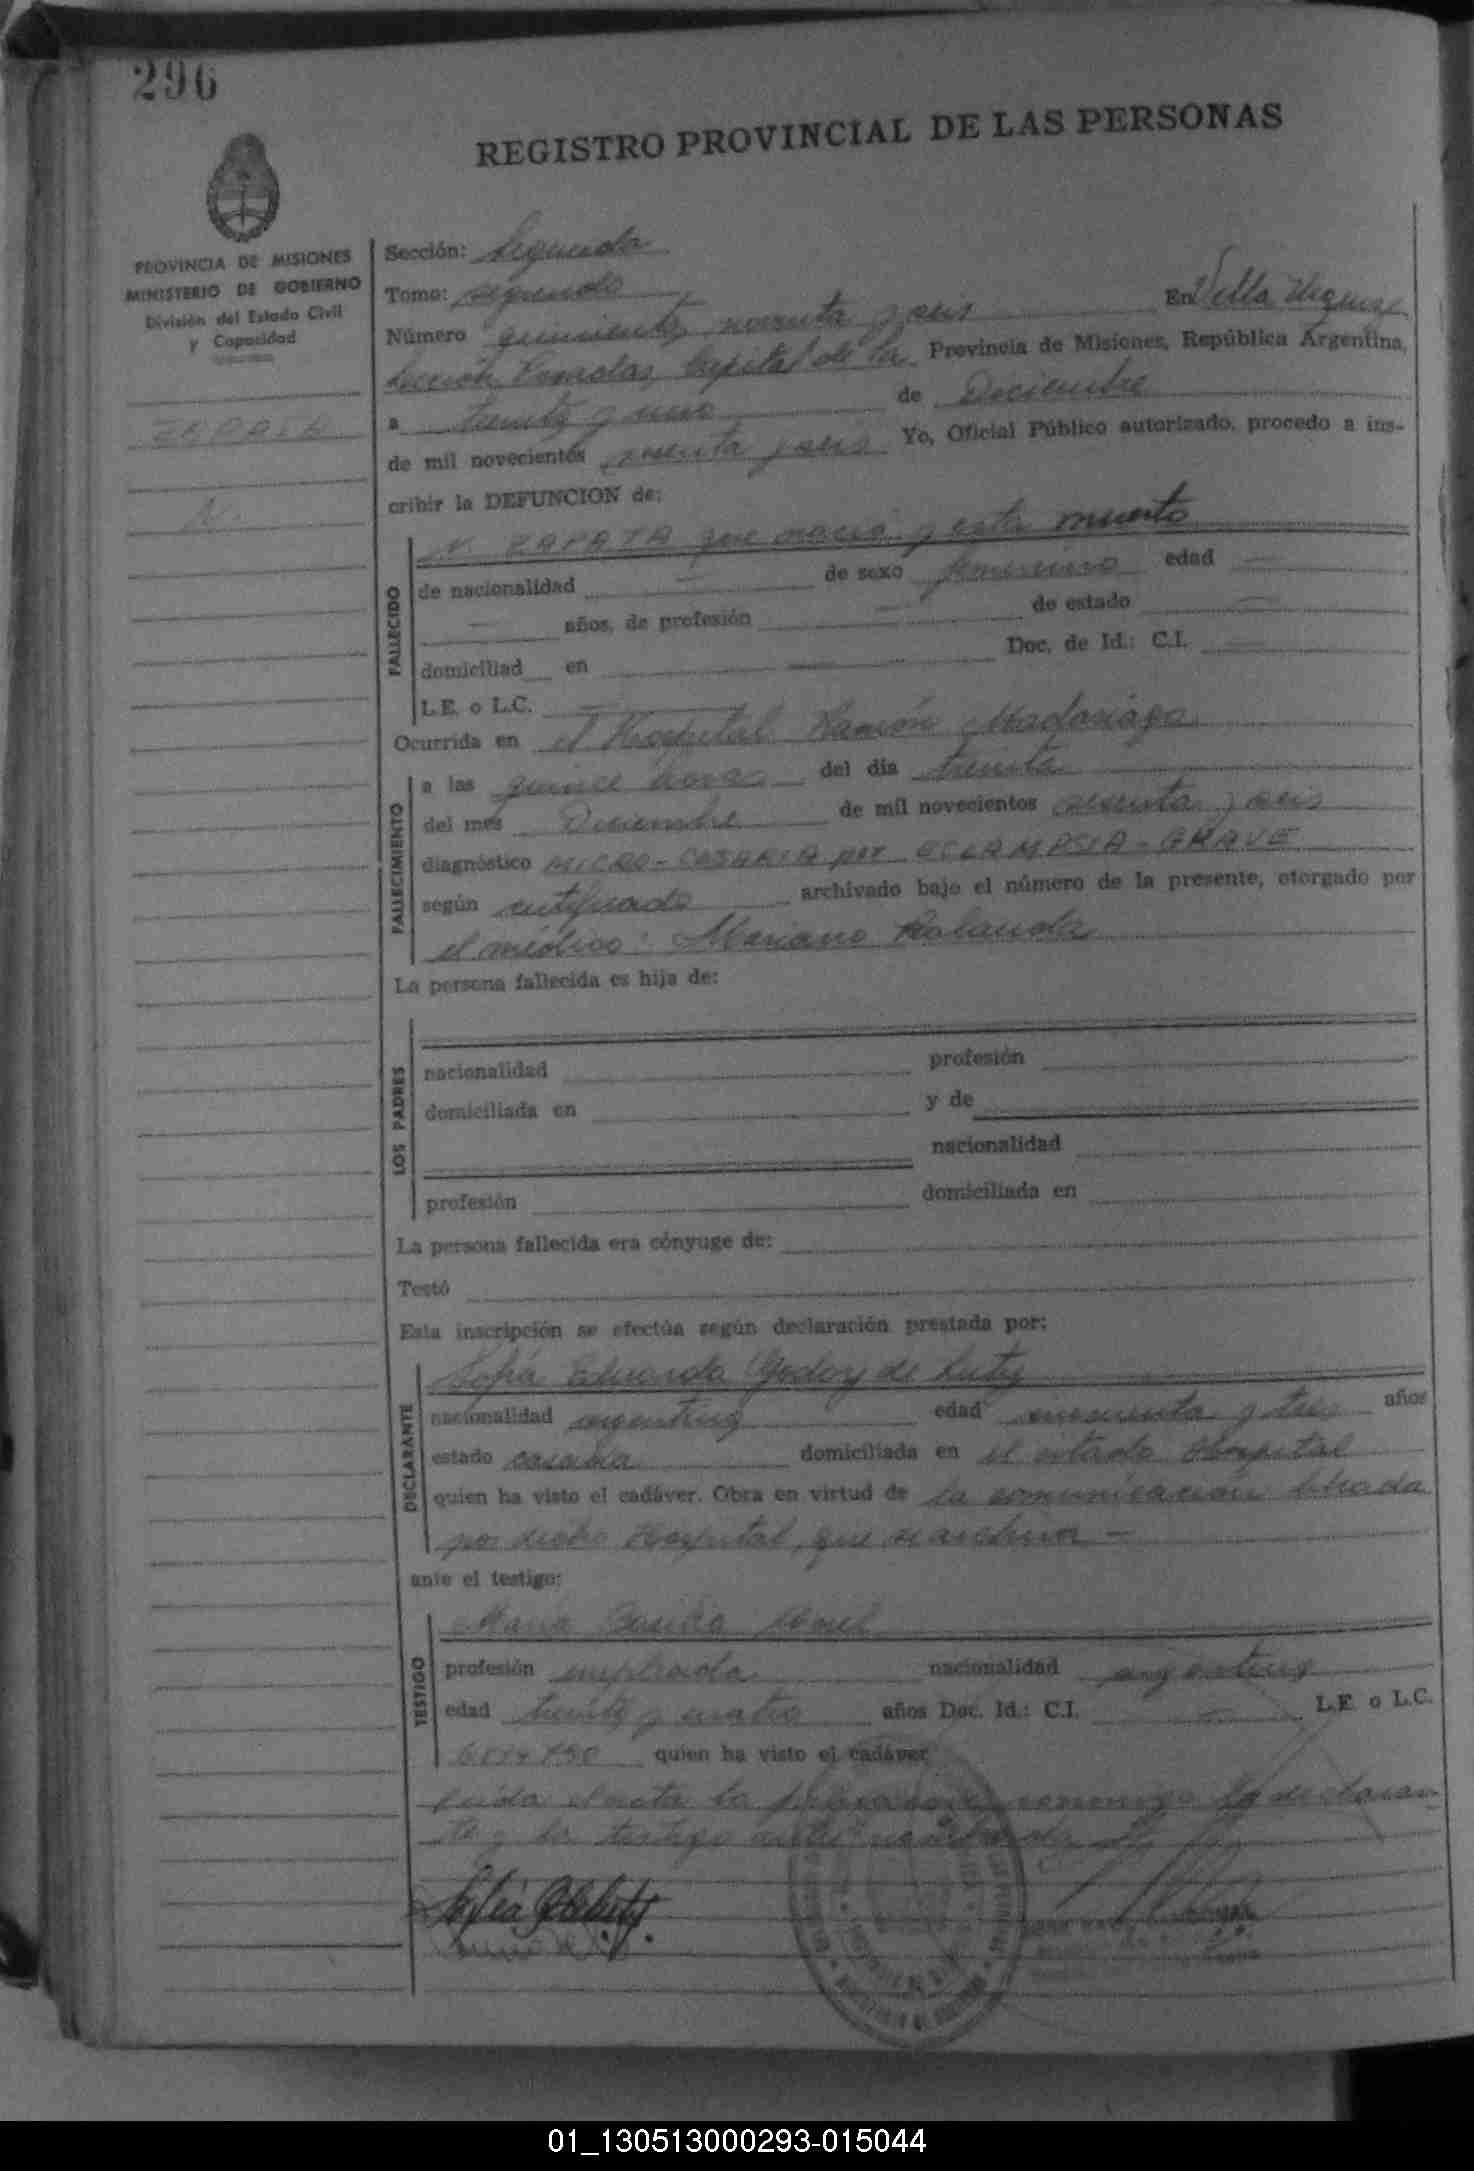 296
REGISTRO PROVINCIAL DE LAS PERSONAS
PROVINCIA DE MISIONES
MINISTERIO DE GOBIERNO
División del Estado Civil
y Capacidad
ZAPATA
N.
Sección: Segunda
Tomo: segundo
Número quinientos noventa y seis En Villa Urquiza
Sección Posadas, Capital de la Provincia de Misiones, República Argentina,
a treinta y uno de Diciembre
de mil novecientos sesenta y seis Yo, Oficial Público autorizado, procedo a ins-
cribir la DEFUNCION de:
N. ZAPATA que nació y está muerto
FALLECIDO
de nacionalidad — de sexo femenino edad —
— años, de profesión — de estado —
domiciliad en — Doc. de Id.: C.I. —
L.E. o L.C. —
Ocurrida en el Hospital Ramón Madariaga
FALLECIMIENTO
a las quince horas del día treinta
del mes Diciembre de mil novecientos sesenta y seis
diagnóstico MICRO-CESARIA por ECLAMPSIA-GRAVE
según certificado archivado bajo el número de la presente, otorgado por
el médico: Mariano
La persona fallecida es hija de:
LOS PADRES
nacionalidad profesión
domiciliada en y de
nacionalidad
profesión domiciliada en
La persona fallecida era cónyuge de:
Testó
Esta inscripción se efectúa según declaración prestada por:
DECLARANTE
Sofía Eduarda Godoy de
nacionalidad argentina edad cincuenta y tres años
estado casada domiciliada en el citado Hospital
quien ha visto el cadáver. Obra en virtud de la comunicación librada
por dicho Hospital, que se archiva —
ante el testigo:
TESTIGO
María
profesión empleada nacionalidad argentina
edad treinta y cuatro años Doc. Id.: C.I. — L.E. o L.C.
quien ha visto el cadáver
Leída el acta la firman conmigo la declaran-
te y la testigo
01_130513000293-015044